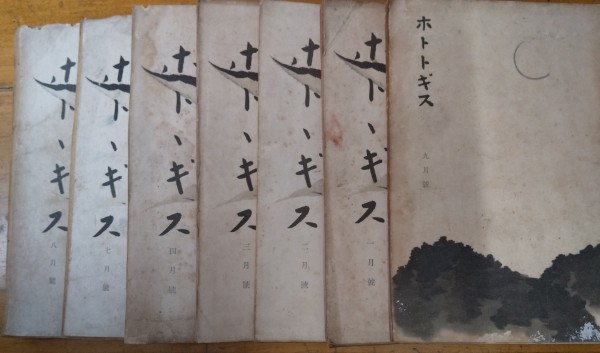 ホトヽギス
八月號
ホトヽギス
七月號
ホトヽギス
四月號
ホトヽギス
三月號
ホトヽギス
二月號
ホトヽギス
一月號
ホトトギス